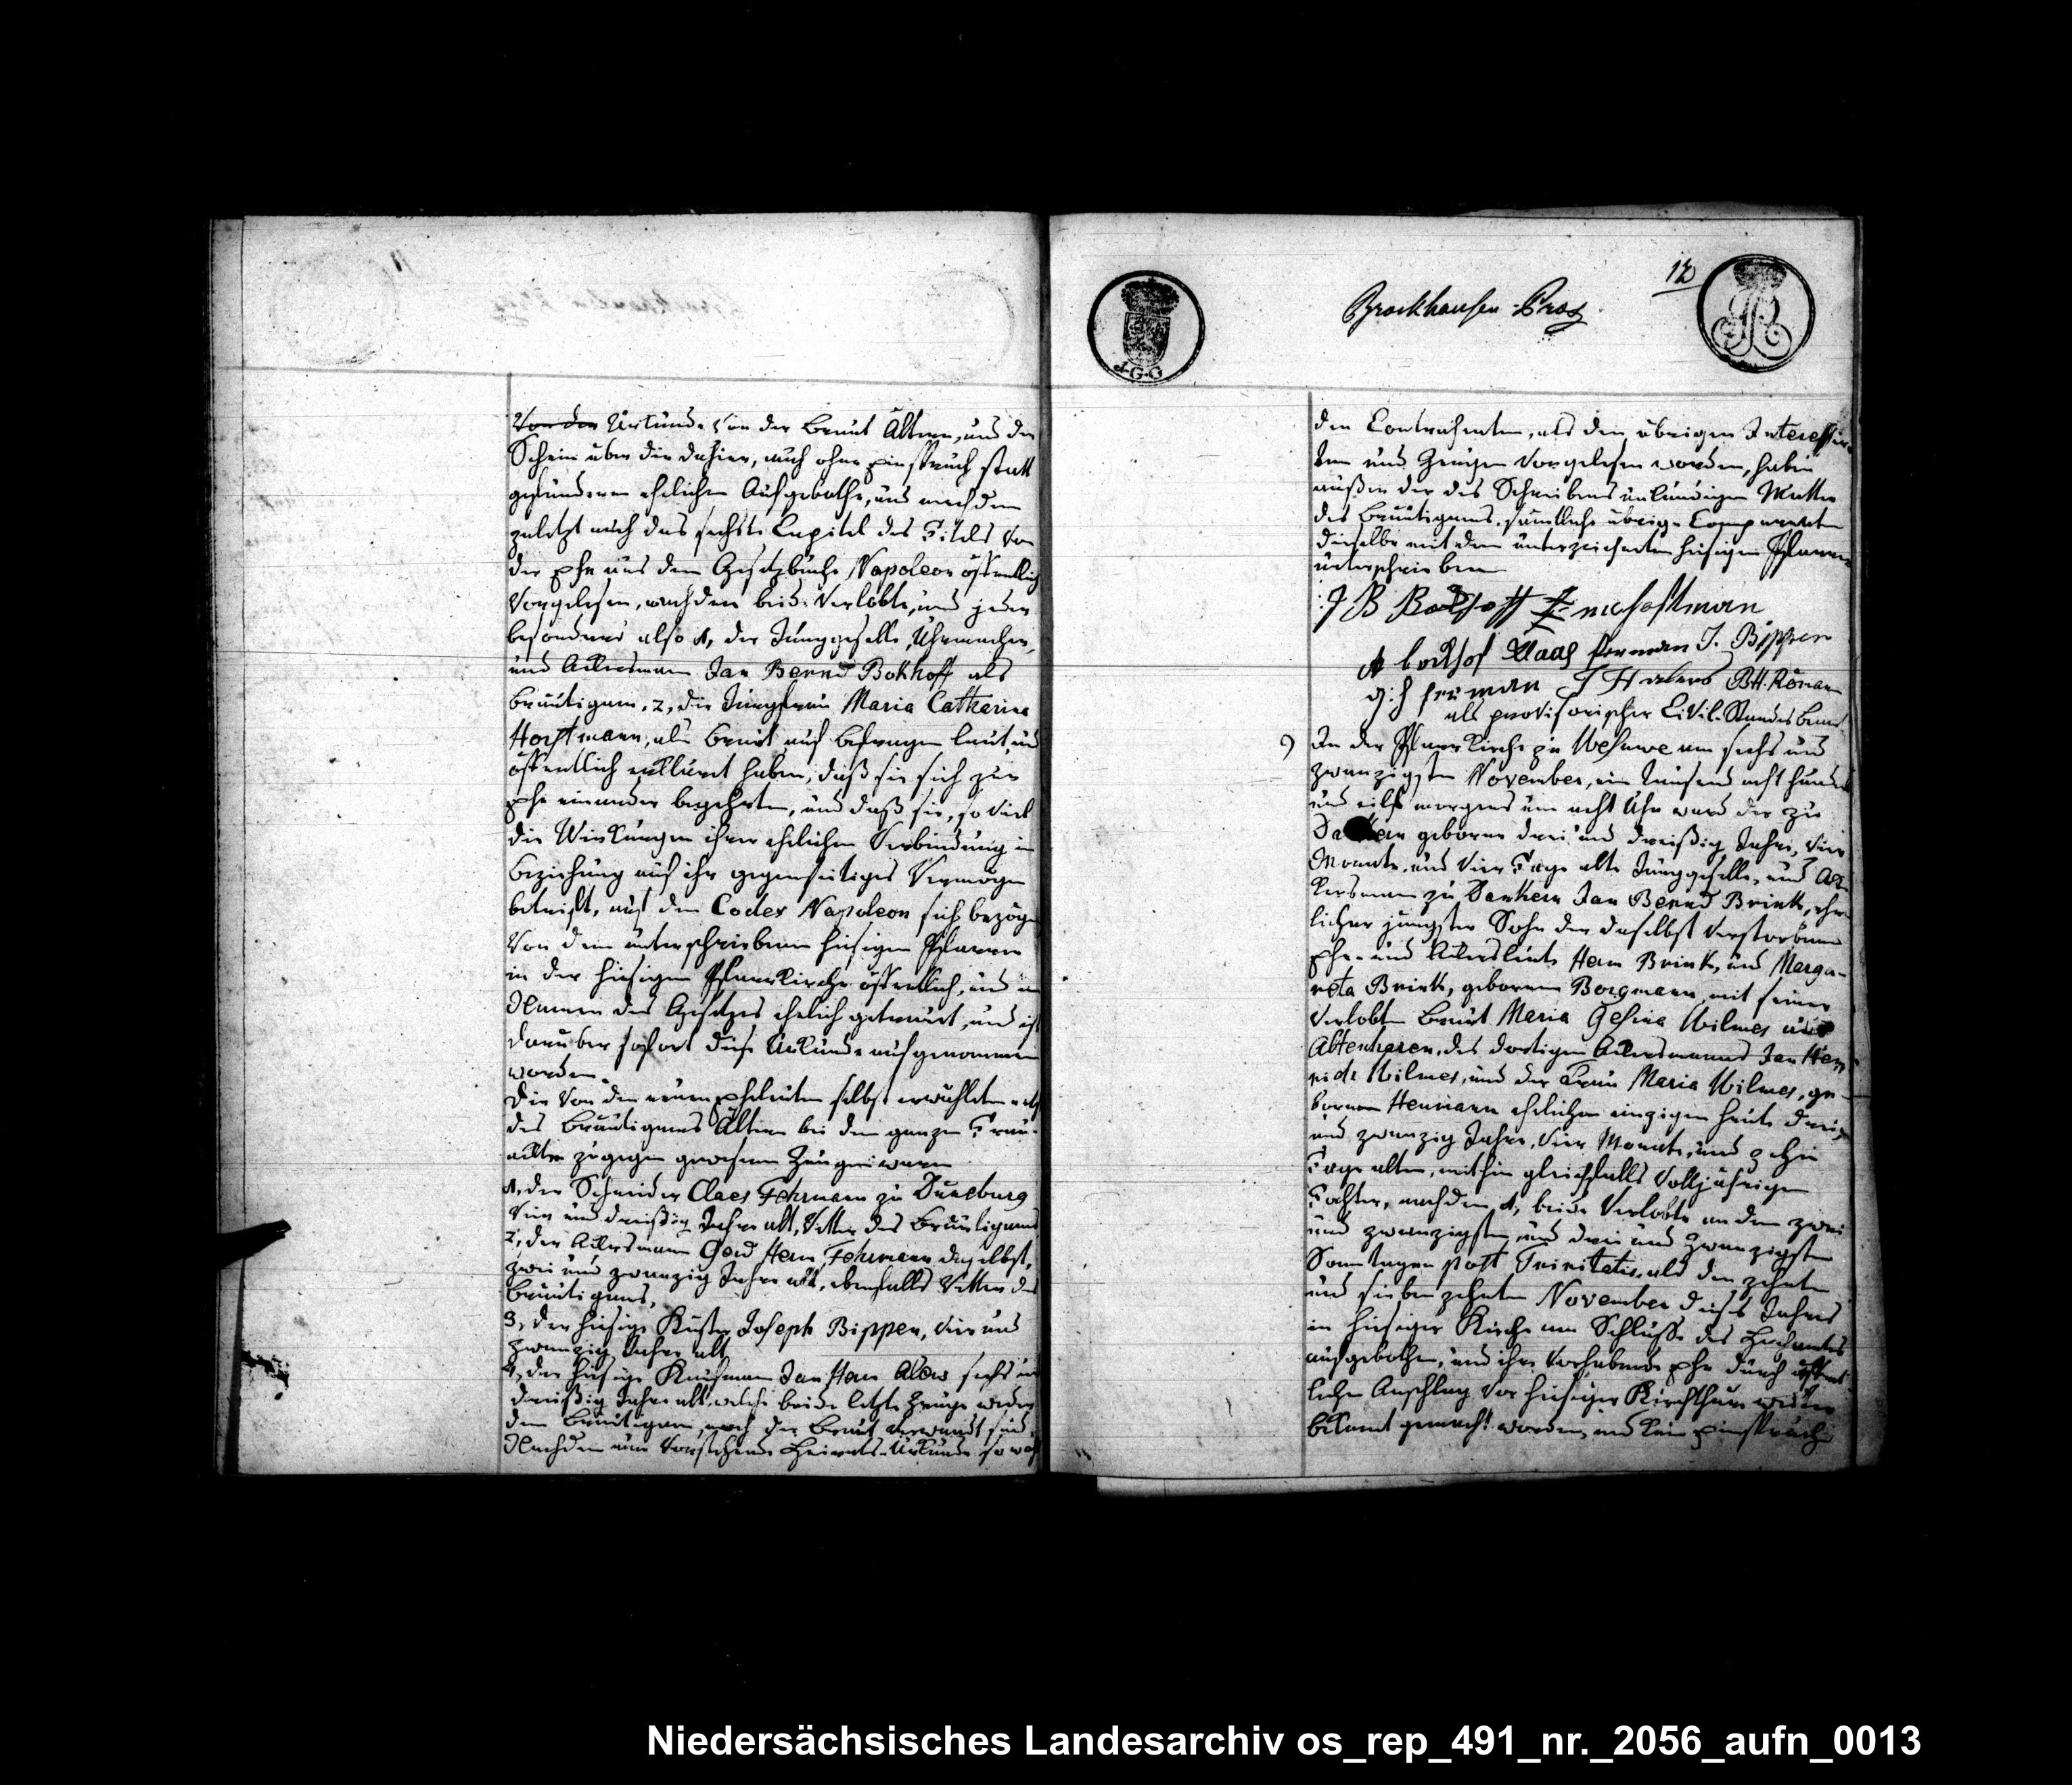 Von der Urkunde von der Braut Ältern, und der
Schein über die dahier, auch ohne Einspruch statt
gefundenen ehelichen Aufgebothe, und nachdem
zuletzt auch das sechste Capitel des Titels von
der Ehe aus dem Gesetzbuche Napoleon öffentlich
vorgelesen, nachdem beide Verlobte, und jeder
besonders also 1, der Junggeselle, Uhrmacher,
und Ackersmann Jan Bernd Bokhoff als
Bräutigam, 2, die Jungfrau Maria Catharina
Horstmann, als Braut auf Befragen laut und
öffentlich erklärt haben, daß sie sich zur
Ehe einander begehrten, und daß sie, so viel
die Wirkungen ihrer ehelichen Verbindung in
Beziehung auf ihr gegenseitiges Vermögen
betrift, auf den Codex Napoleon sich bezögen
von dem unterschriebenen hiesigen Pfarrer
in der hiesigen Pfarrkirche öffentlich, und im
Namen des Gesetzes ehelich getraut, und ist
darüber sofort diese Urkunde aufgenommen
worden.
Die von den neuen Eheleuten selbst erwählten
des Bräutigams Ältern bei dem ganzen Trau-
ackte zugegen gewesenen Zeugen waren
1, der Schneider Claes Fehrmann zu Duneburg
vier und dreißig Jahre alt, Vetter des Bräutigams
2, der Ackersmann Gerd Herm Fehrmann daselbst,
zwei und zwanzig Jahre alt, ebenfalls Vetter des
Bräutigams,
3, der hiesige Küster Joseph Bippen, vier und
zwanzig Jahre alt
4, der hiesige Kaufmann Jan Herm sechs und
dreißig Jahre alt, welche beide letzte Zeugen weder
dem Bräutigam, noch der Braut verwandt sind.
Nachdem nun vorstehende Heiraths-Urkunde so wohl
12
Brockhausen Praes
den Contrahenten, als den übrigen Interessir-
ten und Zeugen vorgelesen worden, haben
außer der des Schreibens unkundigen Mutter
des Bräutigams, sämtliche übrige Comparenten
dieselbe mit dem unterzeichneten hiesigen Pfarrer
unterschrieben
J B Bokhoff
A bockhof Claas ferman J. Bippen
g: h ferman BH. Römann
als provisorischer Civil-Standes Beamte
9) In der Pfarrkirche zu Wesuwe am sechs und
zwanzigsten November, ein Tausend acht hundert
und eilf morgens um acht Uhr ward der zu
Dankern geborne drei und dreißig Jahre, vier
Monate, und vier Tage alte Junggeselle, und Ac-
kersmann zu Dankern Jan Bernd Brink, ehe-
licher jüngster Sohn der daselbst verstorbenen
Ehe- und Ackersleute Herm Brink, und Marga-
reta Brink, gebornen Borgmann, mit seiner
verlobten Braut Maria Gesina Wilmes aus
Altenharen, des dortigen Ackersmanns Jan Hen-
rich Wilmes, und der Frau Maria Wilmes, ge-
bornen Henmann ehelichen einzigen heute drei
und zwanzig Jahre, vier Monate, und zehn
Tage alten, mithin gleichfalls volljährigen
Tochter, nachdem 1, beide Verlobte an dem zwei
und zwanzigsten, und drei und zwanzigsten
Sonntagen post Trinitatis, als den zehnten
und siebenzehnten November dieses Jahres
in hiesiger Kirche am Schlusse des Hochamtes
aufgebothen, und ihre vorhabende Ehe durch öffent-
lichen Anschlag vor hiesiger Kirchthüre weiter
bekannt gemacht worden, und kein Einspruch
Niedersächsisches Landesarchiv os_rep_491_nr._2056_aufn_0013